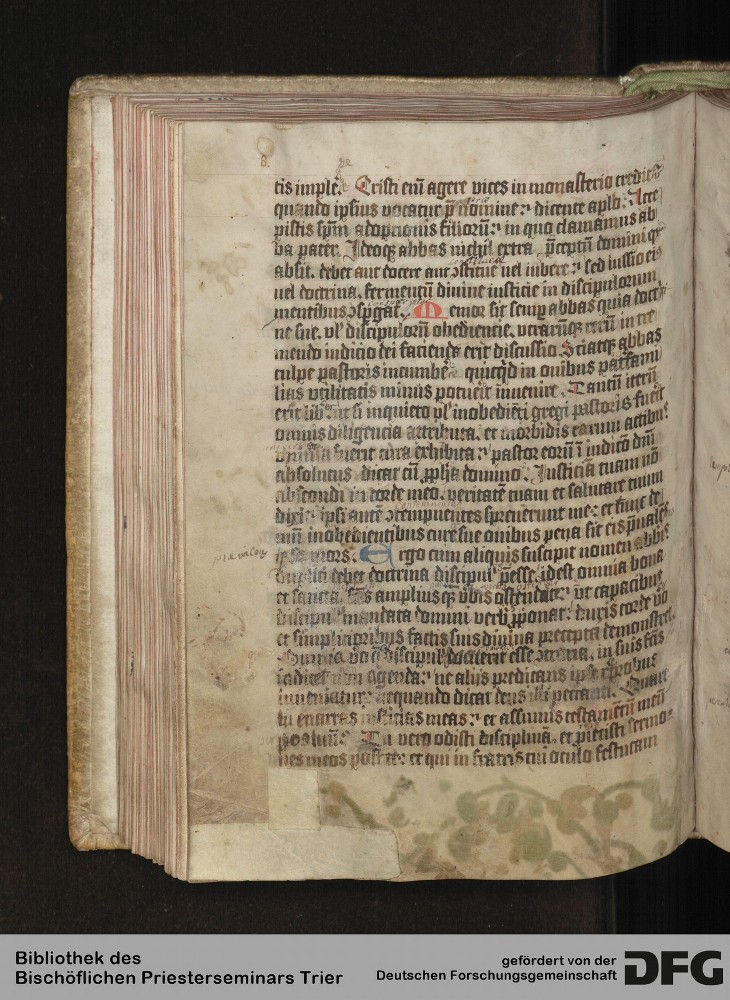 8.
tis imple. Cristi eni agere vices in monasterio credit
quando ipsius vocatur p nomine dicente aplo. Acce
pistis spm adopcionis filiorū in quo clamamus ab
ba pater. Ideoq abbas nichil extra pceptū domini qd
absit. debet aut docere aut ostituere uel iubere sed iussio ei
uel doctrina. fermentū divine iusticie in discipulorum
mentibus ospgat. Memor sit semp abbas quia doct
ne sue. vl discipulorū obediencie. utrarūq rerū in tre
mendo iudicio dei facienda erit discussio. Sciatq abbas
culpe pastoris incumbe quicqd in onibus pat fami
lias utilitatis minus potuerit invenire. Tantū iterū
erit lib ut si inquieto vl inobediēti gregi pastoris fuerit
omnis diligencia attributa. et morbidis earum actibus
fuerit cura exhibita pastor eorū ī iudicō dni
absolutus dicat cū ppha domino. Justicia tuam nō
abscondi in corde meo. veritatē tuam et salutare tuum
dixi ipsi autē otempnentes spreverunt me et tunc de
mū inobedientibus cure sue onibus pena sit eis pualēs
prevalens
ipsa mors. Ergo cum aliquis suscipit nomen abbis
duplici debet doctrina discipul peesse. id est omnia bona
et sancta. fcis amplius q vbis ostendat ut capacibus
discipul mandata domini verb pponat. duris corde vo
et simplicioribus factis suis divina precepta demonstret
Omnia vo q discipul docuerit esse otraria. in suis fcis
indicet non agenda ne alijs predicans ipse reprobus
inveniatur nequando dicat deus illi peccanti. Quare
tu enarras iusticias meas et assumis testamentū meū
p os tuū. Tu vero odisti disciplinā. et piecisti sermo
nes meos post te et qui in fratris tui oculo festucam
Bibliothek des
Bischöflichen Priesterseminars Trier
gefördert von der
Deutschen Forschungsgemeinschaft
DFG